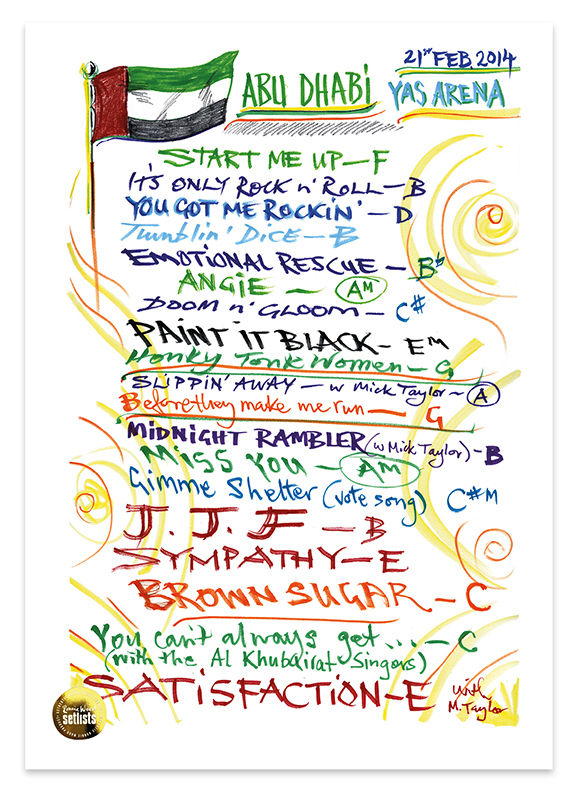 21ST FEB. 2014
ABU DHABi YAS ARENA
START ME UP – F
IT'S ONLY ROCK n' ROLL – B
YOU GOT ME ROCKIN' – D
Tumblin' DICE – B
EMOTIONAL RESCUE – Bb
ANGiE – AM
DOOM n' GLOOM – C#
PAiNT iT BLACK – EM
Honky Tonk Women – G
SLIPPIN' AWAY – w Mick Taylor – A
Before they make me run – G
MiDNiGHT RAMBLER (w Mick Taylor) – B
MiSS YOU – AM
Gimme Shelter (vote song) C#M
J. J. F – B
SYMPATHY – E
BROWN SUGAR – C
You can't always get... – C
(with the Al Khubairat Singers)
SATiSFACTION – E with M. Taylor
Ronnie Wood
setlists